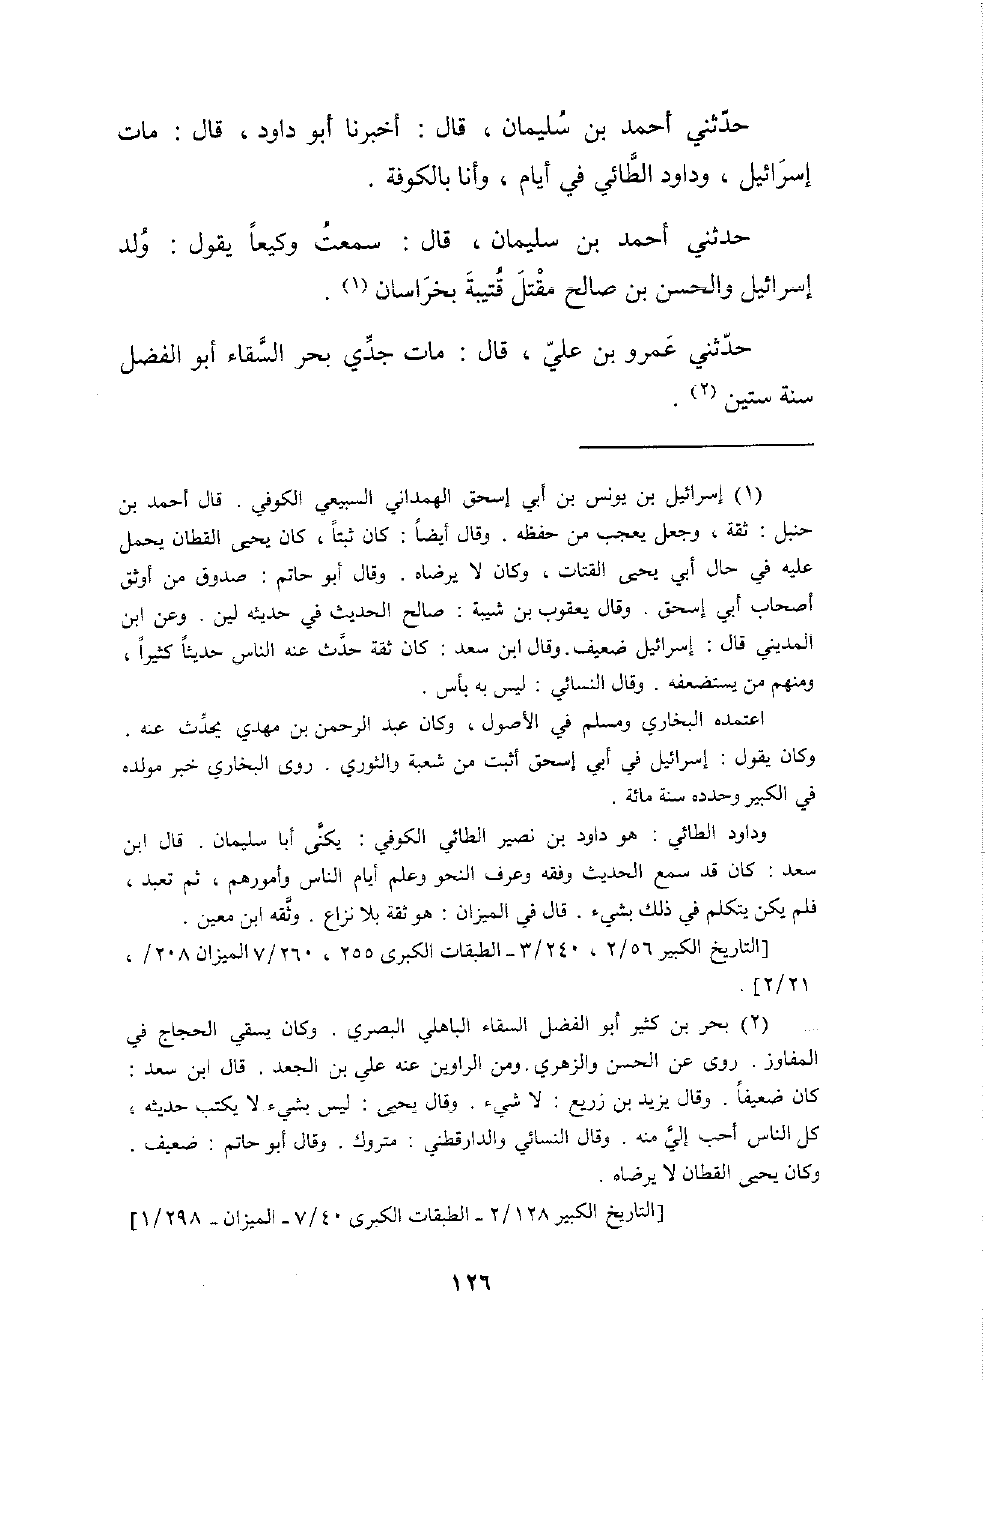 حدّثني أحمد بن سُليمان ، قال : أخبرنا أبو داود ، قال : مات
إسرَائيل ، وداود الطَّائي في أيام ، وأنا بالكوفة .
حدثني أحمد بن سليمان ، قال : سمعتُ وكيعاً يقول : وُلد
إسرائيل والحسن بن صالح مقْتلَ قُتيبةَ بخرَاسان (١) .
حدّثني عَمرو بن عليّ ، قال : مات جدِّي بحر السَّقاء أبو الفضل
سنة ستين (٢) .
(١) إسرائيل بن يونس بن أبي إسحق الهمداني السبيعي الكوفي . قال أحمد بن
حنبل : ثقة ، وجعل يعجب من حفظه . وقال أيضاً : كان ثبتاً ، كان يحيى القطان يحمل
عليه في حال أبي يحيى القتات ، وكان لا يرضاه . وقال أبو حاتم : صدوق من أوثق
أصحاب أبي إسحق . وقال يعقوب بن شيبة : صالح الحديث في حديثه لين . وعن ابن
المديني قال : إسرائيل ضعيف . وقال ابن سعد : كان ثقة حدَّث عنه الناس حديثاً كثيراً ،
ومنهم من يستضعفه . وقال النسائي : ليس به بأس .
اعتمده البخاري ومسلم في الأصول ، وكان عبد الرحمن بن مهدي يحدِّث عنه .
وكان يقول : إسرائيل في أبي إسحق أثبت من شعبة والثوري . روى البخاري خبر مولده
في الكبير وحدده سنة مائة .
وداود الطائي : هو داود بن نصير الطائي الكوفي : يكنَّى أبا سليمان . قال ابن
سعد : كان قد سمع الحديث وفقه وعرف النحو وعلم أيام الناس وأمورهم ، ثم تعبد ،
فلم يكن يتكلم في ذلك بشيء . قال في الميزان : هو ثقة بلا نزاع . وثَّقه ابن معين .
[التاريخ الكبير ٢/٥٦ ، ٣/٢٤٠ ـ الطبقات الكبرى ٢٥٥ ، ٧/٢٦٠ الميزان ٢٠٨/ ،
٢/٢١] .
(٢) بحر بن كثير أبو الفضل السقاء الباهلي البصري . وكان يسقي الحجاج في
المفاوز . روى عن الحسن والزهري . ومن الراوين عنه علي بن الجعد . قال ابن سعد :
كان ضعيفاً . وقال يزيد بن زريع : لا شيء . وقال يحيى : ليس بشيء لا يكتب حديثه ،
كل الناس أحب إليَّ منه . وقال النسائي والدارقطني : متروك . وقال أبو حاتم : ضعيف .
وكان يحيى القطان لا يرضاه .
[التاريخ الكبير ٢/١٢٨ ـ الطبقات الكبرى ٧/٤٠ ـ الميزان ـ ١/٢٩٨]
١٢٦